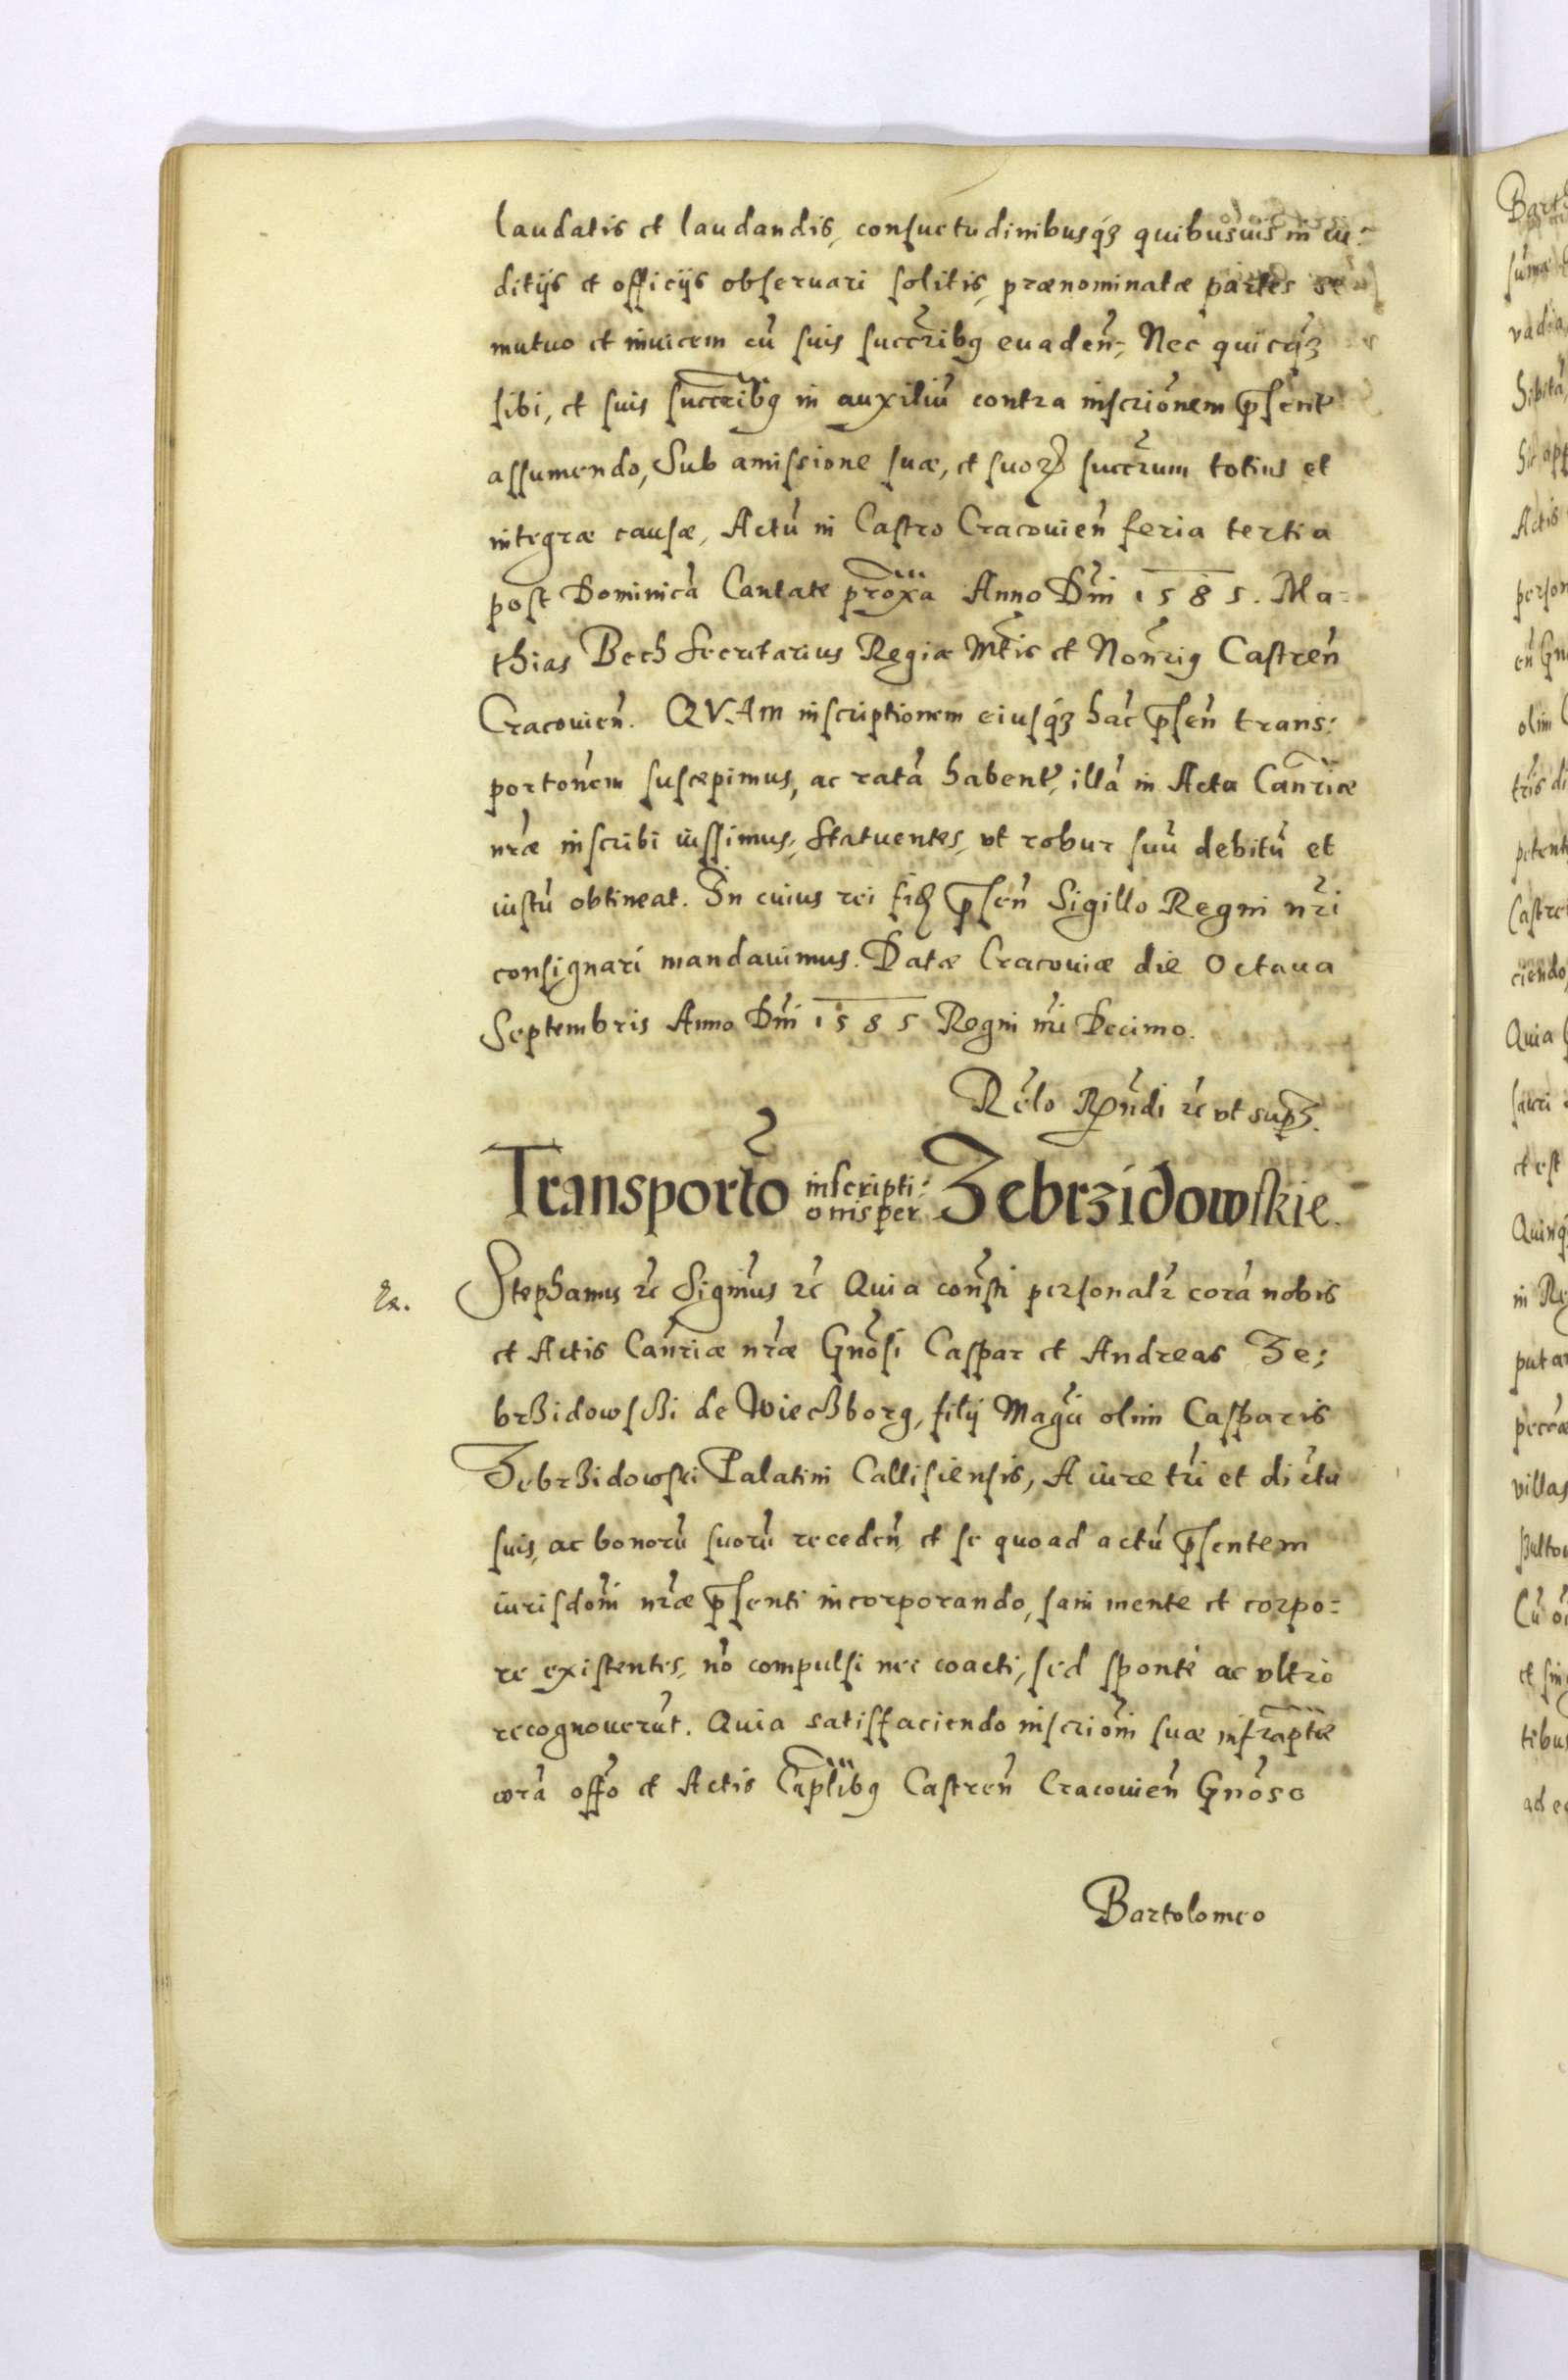 laudatis et laudandis, consuetudinibusq́3 quibusuis in iu=
ditijs et officijs obseruari solitis, prænominatæ partes se
mutuo et inuicem cũ suis succr̃ibꝯ euadeñ, Nec quicq́3
sibi, et suis succr̃ibꝯ in auxiliũ contra inscrĩonem p̃sent̃
assumendo, Sub amissione suæ, et suoꝝ succr̃um totius et
integræ causæ, Actũ in Castro Cracouieñ feria tertia
post Dominicã Cantate prox̃a Anno Dñi 1585. Ma=
thias Bech Secretarius Regiæ Mt̃is et Nõrꝯ Castreñ
Cracouieñ. QVAm inscriptionem eiusq́3 hãc p̃señ trans:
portõnem suscepimus, ac ratã habent̃, illã in Acta Cañriæ
nr̃æ inscribi iussimus, Statuentes, vt robur suũ debitũ et
iustũ obtineat. In cuius rei fiđ p̃señ Sigillo Regni nr̃i
consignari mandauimus. Datæ Cracouiæ die Octaua
Septembris Anno Dñi 1585 Regni nr̃i Decimo.
Rẽlo Rñdi rc̃ vt sup̃3.
Transporto᷉ inscripti:
onis per Zebrzidowskie.
Stephanus rc̃ Sigm̃us rc̃ Quia const̃i personalr̃ corã nobis
et Actis Cañriæ nr̃æ Gnõsi Caspar et Andreas Ze:
brzidowski de Wiechborg, filij Magci̇ olim Casparis
Zebrzidowski Palatini Callisiensis, A iure tr̃i et dirc̃tu
suis, ac bonorũ suorũ recedeñ, et se quoad actũ p̃sentem
iurisdõni nr̃æ p̃senti incorporando, sani mente et corpo=
re existentes, nõ compulsi nec coacti, sed sponte ac vltro
recognouerũt. Quia satisfaciendo inscrĩoni suæ infrap̃tæ
corã offo᷉ et Actis Cap̃libꝯ Castreñ Cracouieñ Gnõso
Bartolomeo